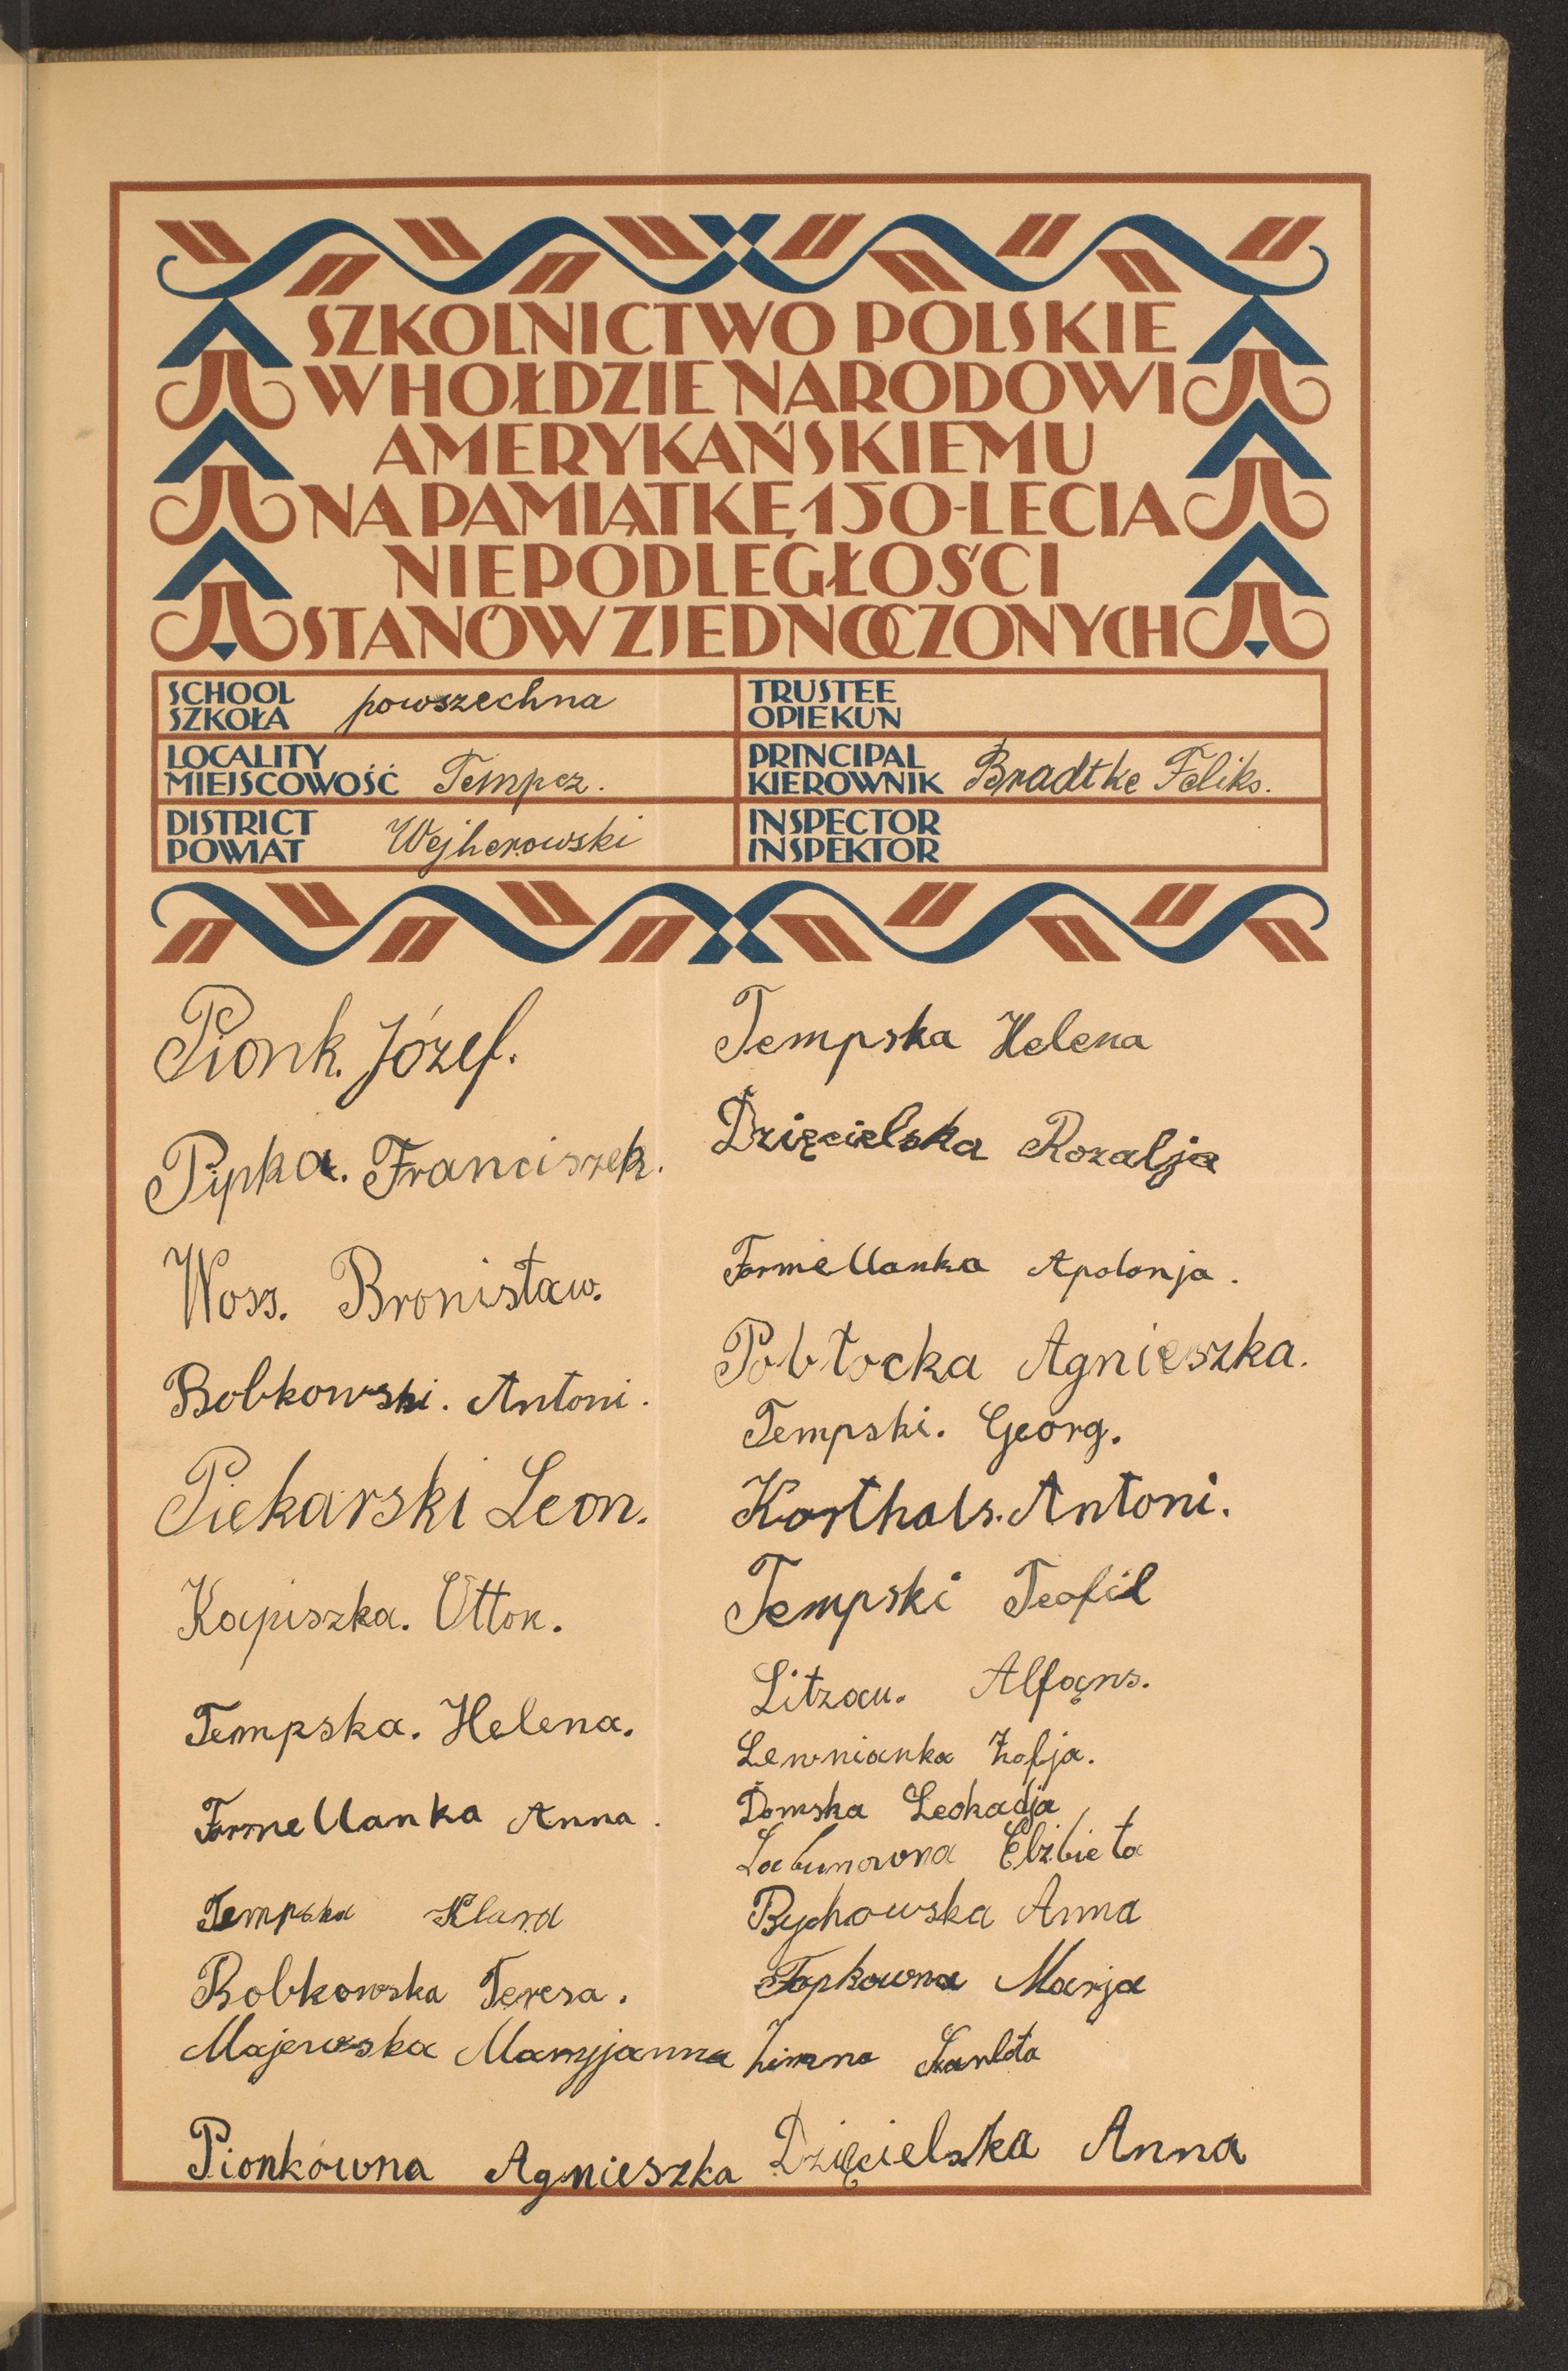 SZKOLNICTWO POLSKIE
W HOŁDZIE NARODOWI
AMERYKAŃSKIEMU
NA PAMIĄTKĘ 150-LECIA
NIEPODLEGŁOŚCI
STANÓW ZJEDNOCZONYCH
SCHOOL
SZKOŁA powszechna
TRUSTEE
OPIEKUN
LOCALITY
MIEJSCOWOŚĆ Tempcz.
PRINCIPAL
KIEROWNIK Bradtke Feliks.
DISTRICT
POWIAT Wejherowski
INSPECTOR
INSPEKTOR
Pionk. Józef.
Pipka. Franciszek.
Woss. Bronisław.
Bobkowski. Antoni.
Piekarski Leon.
Kapiszka. Otton.
Tempska. Helena.
Formellanka Anna.
Tempska Klara
Bobkowska Teresa.
Majewska Maryjanna
Pionkówna Agnieszka
Tempska Helena
Dzięcielska Rozalja
Formellanka Apolonja.
Pobłocka Agnieszka.
Tempski. Georg.
Korthals. Antoni.
Tempski Teofil
Litzau. Alfąns.
Lewnianka Zofja.
Domska Leokadja
Labunowna Elżbieta
Bychowska Anna
Topkowna Marja
Zimna
Dzięcielska Anna